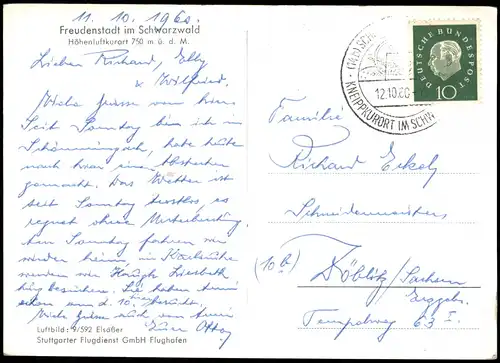 11. 10. 1960.
Freudenstadt im Schwarzwald
Höhenluftkurort 750 m ü. d. M.
Lieben Richard, Elly
& Wilfried.
Viele Grüsse von hier.
Seit Sonntag bin ich in
habe heute
noch hier einen Abstecher
gemacht. Das Wetter ist
seit Sonntag trostlos, es
regnet ohne Unterbrechung
Am Sonntag fahren wir
wieder heim in Karlsruhe
werden wir Liesbeth
besuchen. Sie haben
am d. 10.
Viele Grüsse auch von
Euer Otto
Luftbild: 9/592 Elsäßer
Stuttgarter Flugdienst GmbH Flughafen
DEUTSCHE BUNDESPOST
10
12.10.60
KNEIPPKURORT IM SCHW
Familie
Richard
Schneidermeister
(10 b)
/Sachsen
Erzgeb.
63 I.